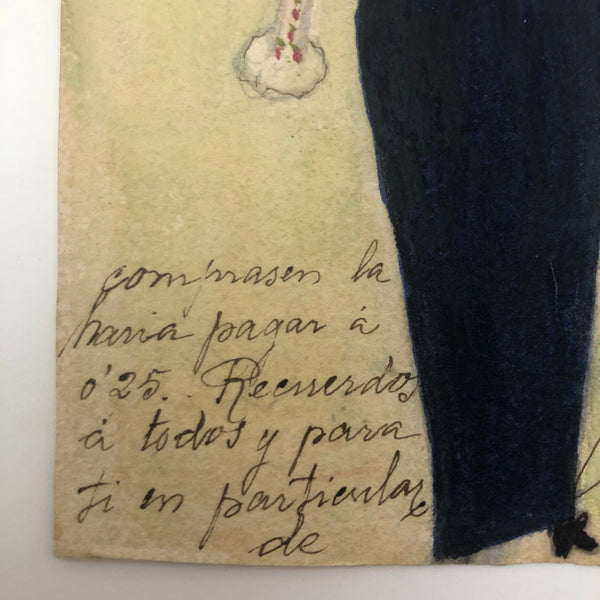 comprasen la
haria pagar á
0'25. Recuerdos
á todos y para
ti en particular
de